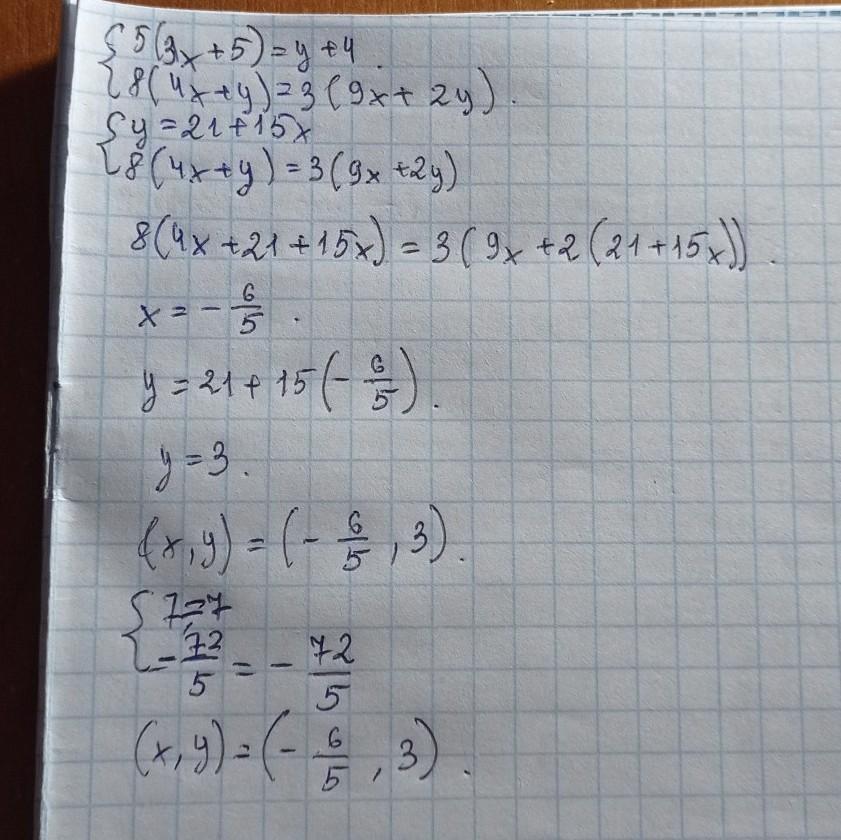 { 5(3x+5)=y+4.
{ 8(4x+y)=3(9x+2y).
{ y=21+15x
{ 8(4x+y)=3(9x+2y)
8(4x+21+15x)=3(9x+2(21+15x)).
x=-6/5.
y=21+15(-6/5).
y=3.
(x,y)=(-6/5,3).
{ 7=7
{ -72/5=-72/5
(x,y)=(-6/5,3).